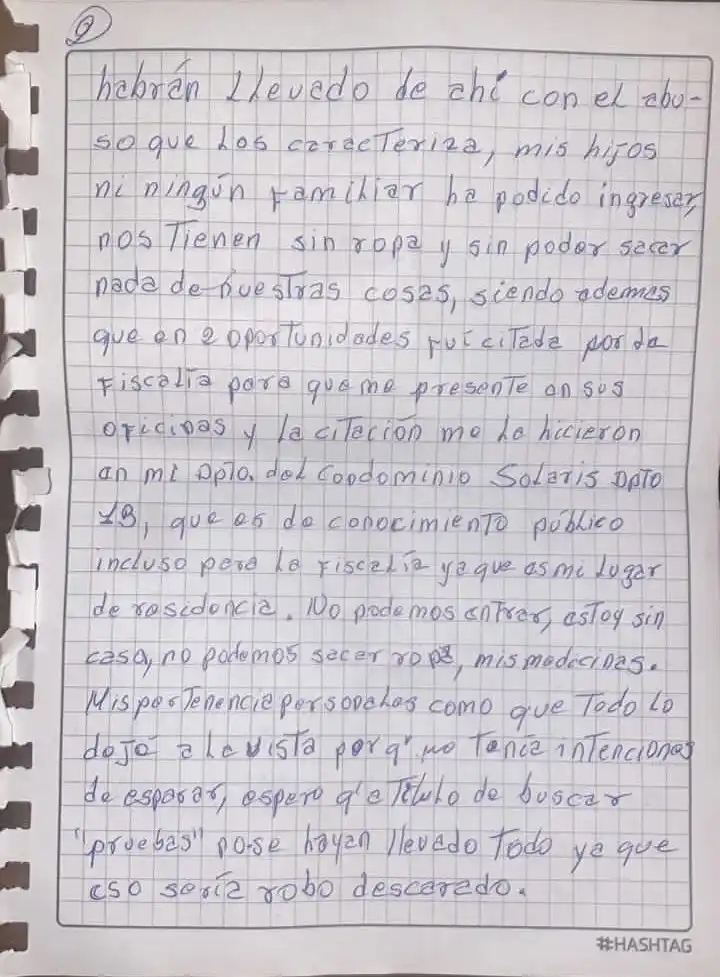 9
habrán llevado de ahí con el abu-
so que los caracteriza, mis hijos
ni ningún familiar ha podido ingresar,
nos tienen sin ropa y sin poder sacar
nada de nuestras cosas, siendo ademas
que en 2 oportunidades fuí citada por la
Fiscalía para que me presente en sus
oficinas y la citación me la hicieron
en mi Dpto. del Condominio Solaris Dpto
1B, que es de conocimiento público
incluso para la Fiscalía ya que es mi lugar
de residencia. No podemos entrar, estoy sin
casa, no podemos sacar ropa, mis medicinas.
Mis pertenencia personales como que todo lo
dejó a la vista porq' no tenía intenciones
de esperar, espero q' a título de buscar
"pruebas" no se hayan llevado todo ya que
eso sería robo descarado.
#HASHTAG